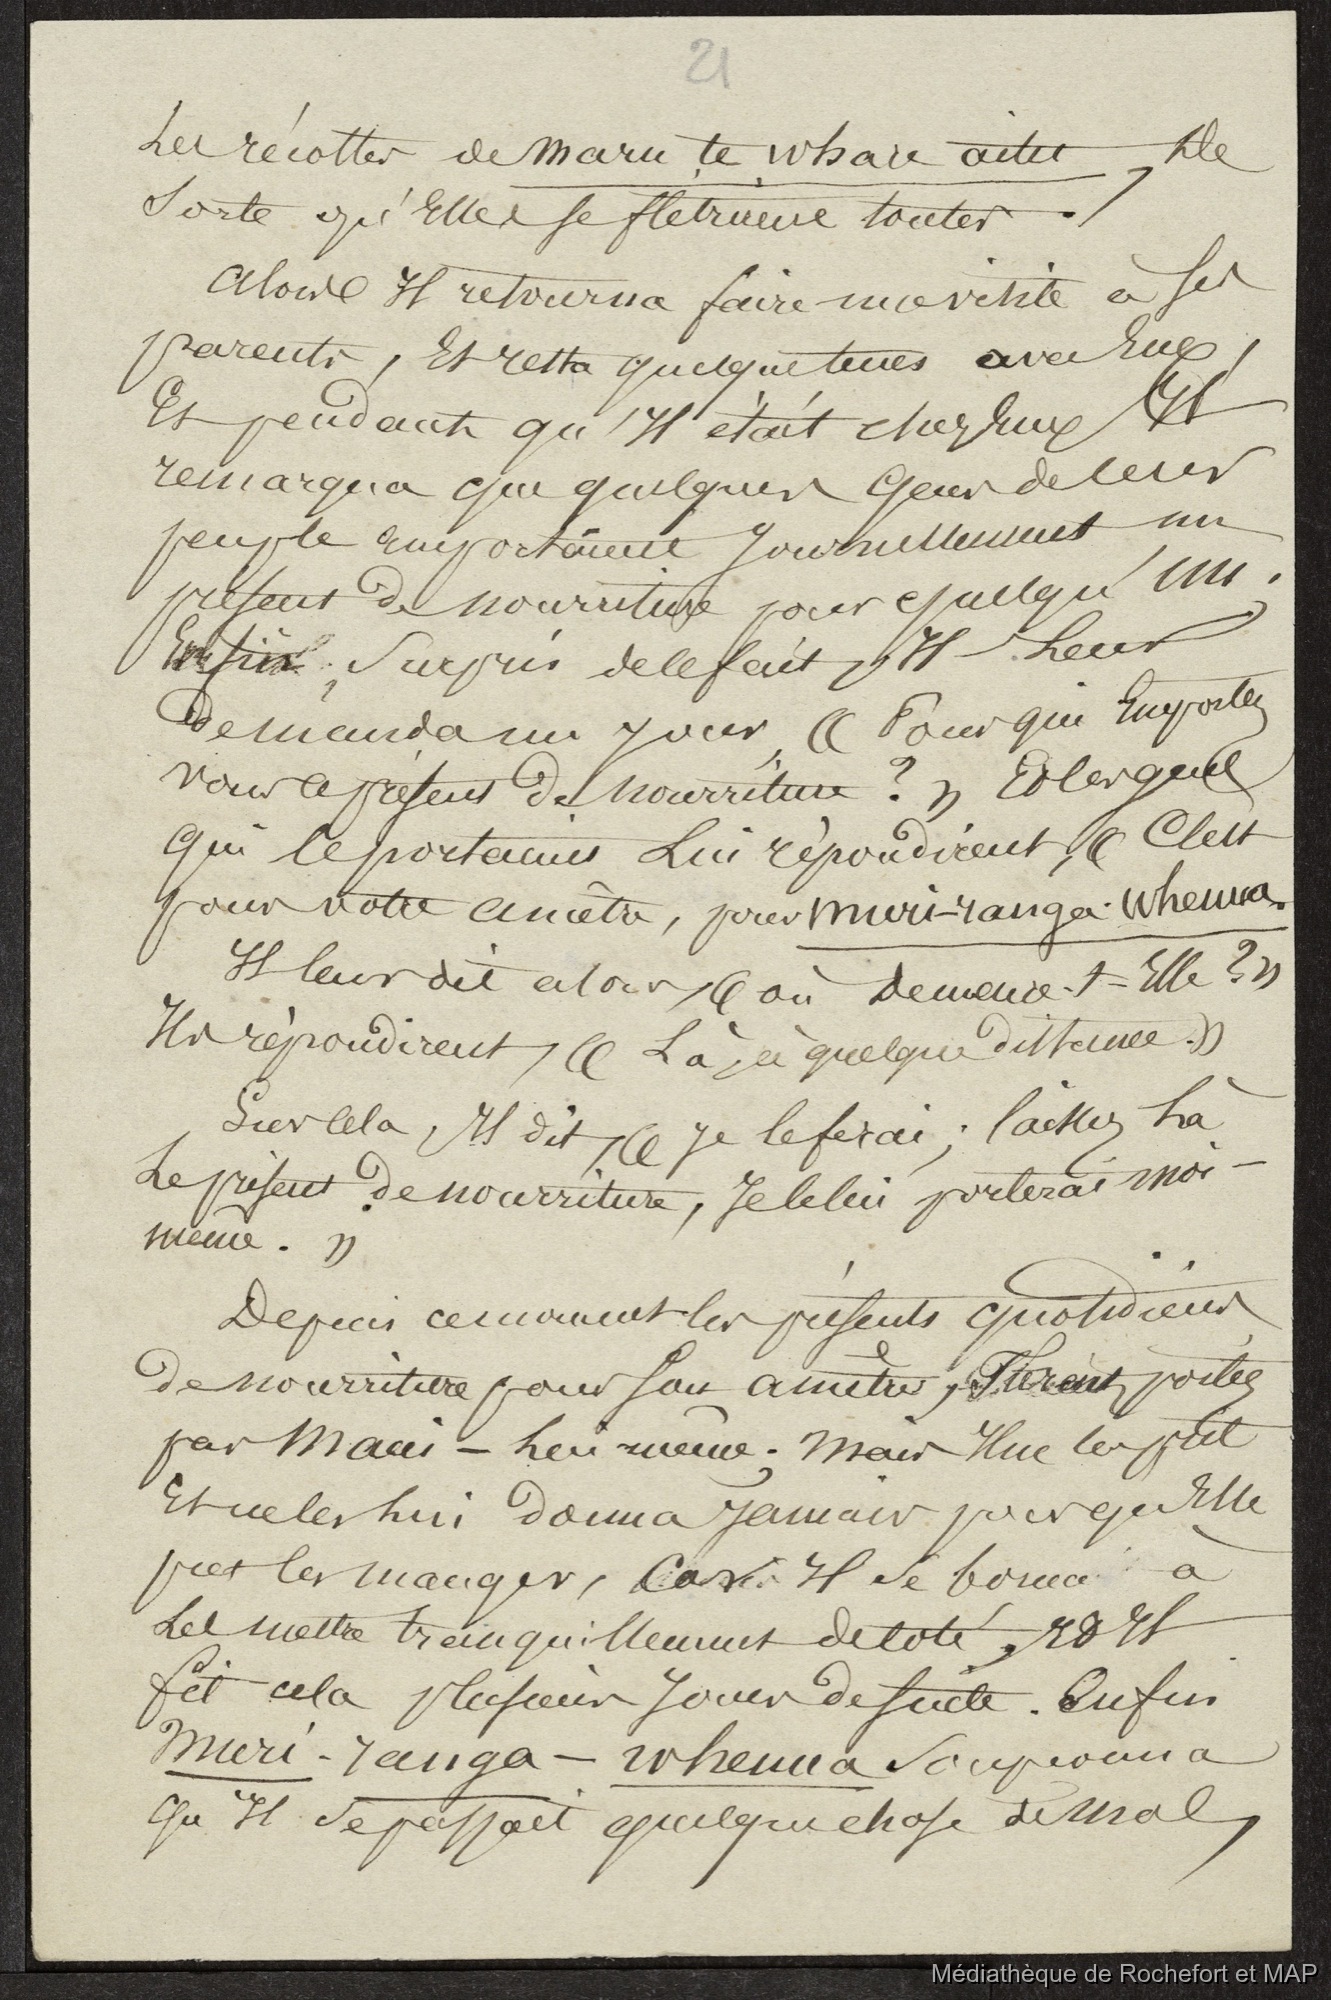 21
Les récoltes de Maru te whare aitu, de
Sorte qu'Elles se flétrirent toutes.
Alors Il retourna faire une visite à ses
parents, Et resta quelque temps avec Eux,
Et pendant qu'Il était chez Eux Il
remarqua que quelques Gens de leur
peuple emportaient Journellement un
présent de nourriture pour quelqu'un ;
Enfin, Surpris de le fait, Il Leur
demanda un jour, « Pour qui Emportez
vous ce présent de nourriture ? » Et lesquels
qui le portaient Lui répondirent, « C'est
pour votre ancêtre, pour Muri-ranga-whenua.
Il leur dit alors, « où demeure-t-Elle ? »
Ils répondirent, « Là, à quelque distance. »
Sur cela, Il dit, « Je le ferai ; laissez Là
Le présent de nourriture, Je le lui porterai moi-
même. »
Depuis ce moment les présents quotidiens
de nourriture pour son ancêtre, Furent portés
par Maui - Lui même ; Mais Il ne les prit
Et ne les Lui donna Jamais pour qu'Elle
put les manger, Car Il se borna à
Les mettre tranquillement de côté, Et Il
fit cela plusieurs Jours de suite. Enfin
Muri-ranga-whenua Soupçonna
qu'Il se passait quelque chose de Mal,
Médiathèque de Rochefort et MAP